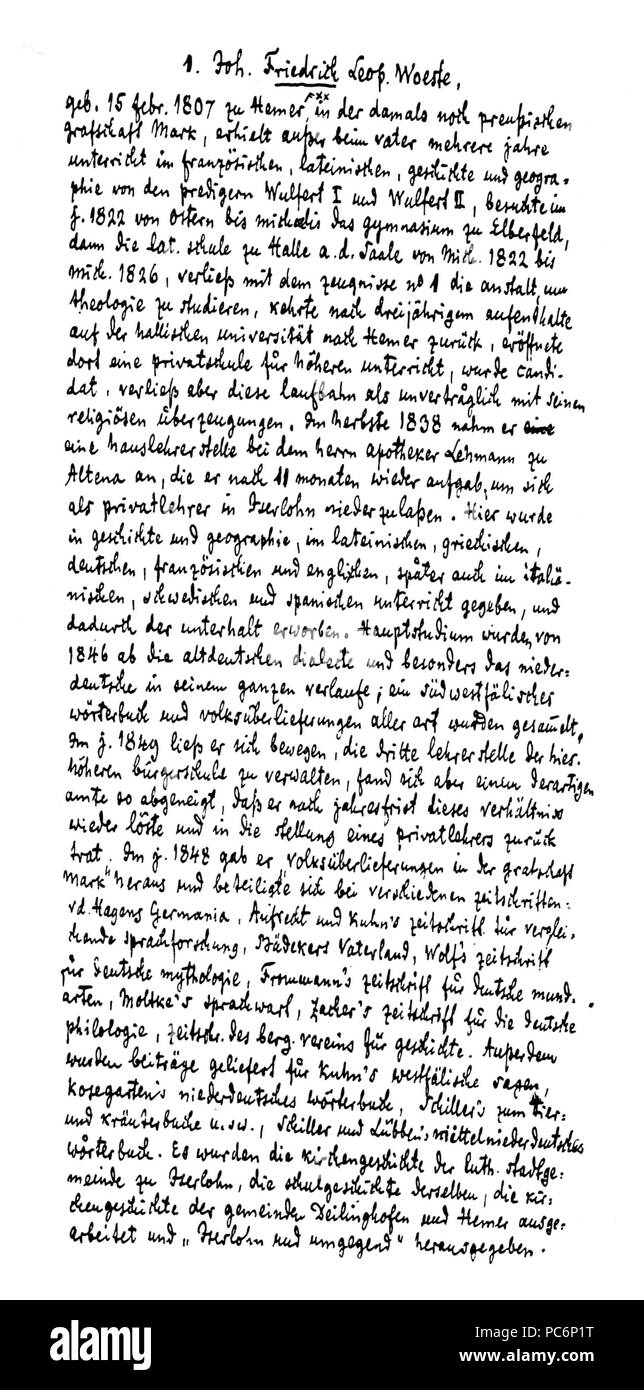 1. Joh. Friedrich Leop. Woeste,
geb. 15 febr. 1807 zu Hemer, in der damals noch preußischen
grafschaft Mark, erhielt außer beim vater mehrere jahre
unterricht im französischen, lateinischen, geschichte und geogra-
phie von den predigern Wulfert I und Wulfert II, besuchte im
j. 1822 von Ostern bis michaelis das gymnasium zu Elberfeld,
dann die lat. schule zu Halle a. d. Saale von Mich. 1822 bis
mich. 1826, verließ mit dem zeugnisse no 1 die anstalt, um
theologie zu studieren, kehrte nach dreijährigem aufenthalte
auf der hallischen universität nach Hemer zurück, eröffnete
dort eine privatschule für höheren unterricht, wurde candi-
dat, verließ aber diese laufbahn als unverträglich mit seinen
religiösen überzeugungen. Im herbste 1838 nahm er eine
eine hauslehrerstelle bei dem herrn apotheker Lehmann zu
Altena an, die er nach 11 monaten wieder aufgab, um sich
als privatlehrer in Iserlohn niederzulaßen. Hier wurde
in geschichte und geographie, im lateinischen, griechischen,
deutschen, französischen und englischen, später auch im italiä-
nischen, schwedischen und spanischen unterricht gegeben, und
dadurch der unterhalt erworben. Hauptstudium wurden von
1846 ab die altdeutschen dialecte und besonders das nieder-
deutsche in seinem ganzen verlaufe; ein südwestfälisches
wörterbuch und volksüberlieferungen aller art wurden gesammelt.
Im j. 1849 ließ er sich bewegen, die dritte lehrerstelle der hies.
höheren bürgerschule zu verwalten, fand sich aber einem derartigen
amte so abgeneigt, daß er nach jahresfrist dieses verhältniss
wieder löste und in die stellung eines privatlehrers zurück
trat. Im j. 1848 gab er „volksüberlieferungen in der grafschaft
Mark" heraus und beteiligte sich bei verschiedenen zeitschriften:
v.d. Hagens Germania, Aufrecht und Kuhn's zeitschrift für verglei-
chende sprachforschung, Bädekers Vaterland, Wolf's zeitschrift
für deutsche mythologie, Frommann's zeitschrift für deutsche mund-
arten, Moltke's sprachwart, Zacher's zeitschrift für die deutsche
philologie, zeitschr. des berg. vereins für geschichte. Außerdem
wurden beiträge geliefert für Kuhn's westfälische sagen,
Kosegarten's niederdeutsches wörterbuch, Schiller's zum tier-
und kräuterbuche u.s.w., Schiller und Lübben's mittelniederdeutsches
wörterbuch. Es wurden die kirchengeschichte der luth. stadtge-
meinde zu Iserlohn, die schulgeschichte derselben, die kir-
chengeschichte der gemeinden Deilinghofen und Hemer ausge-
arbeitet und „Iserlohn und umgegend" herausgegeben.
alamy
Image ID: PC6P1T
www.alamy.com